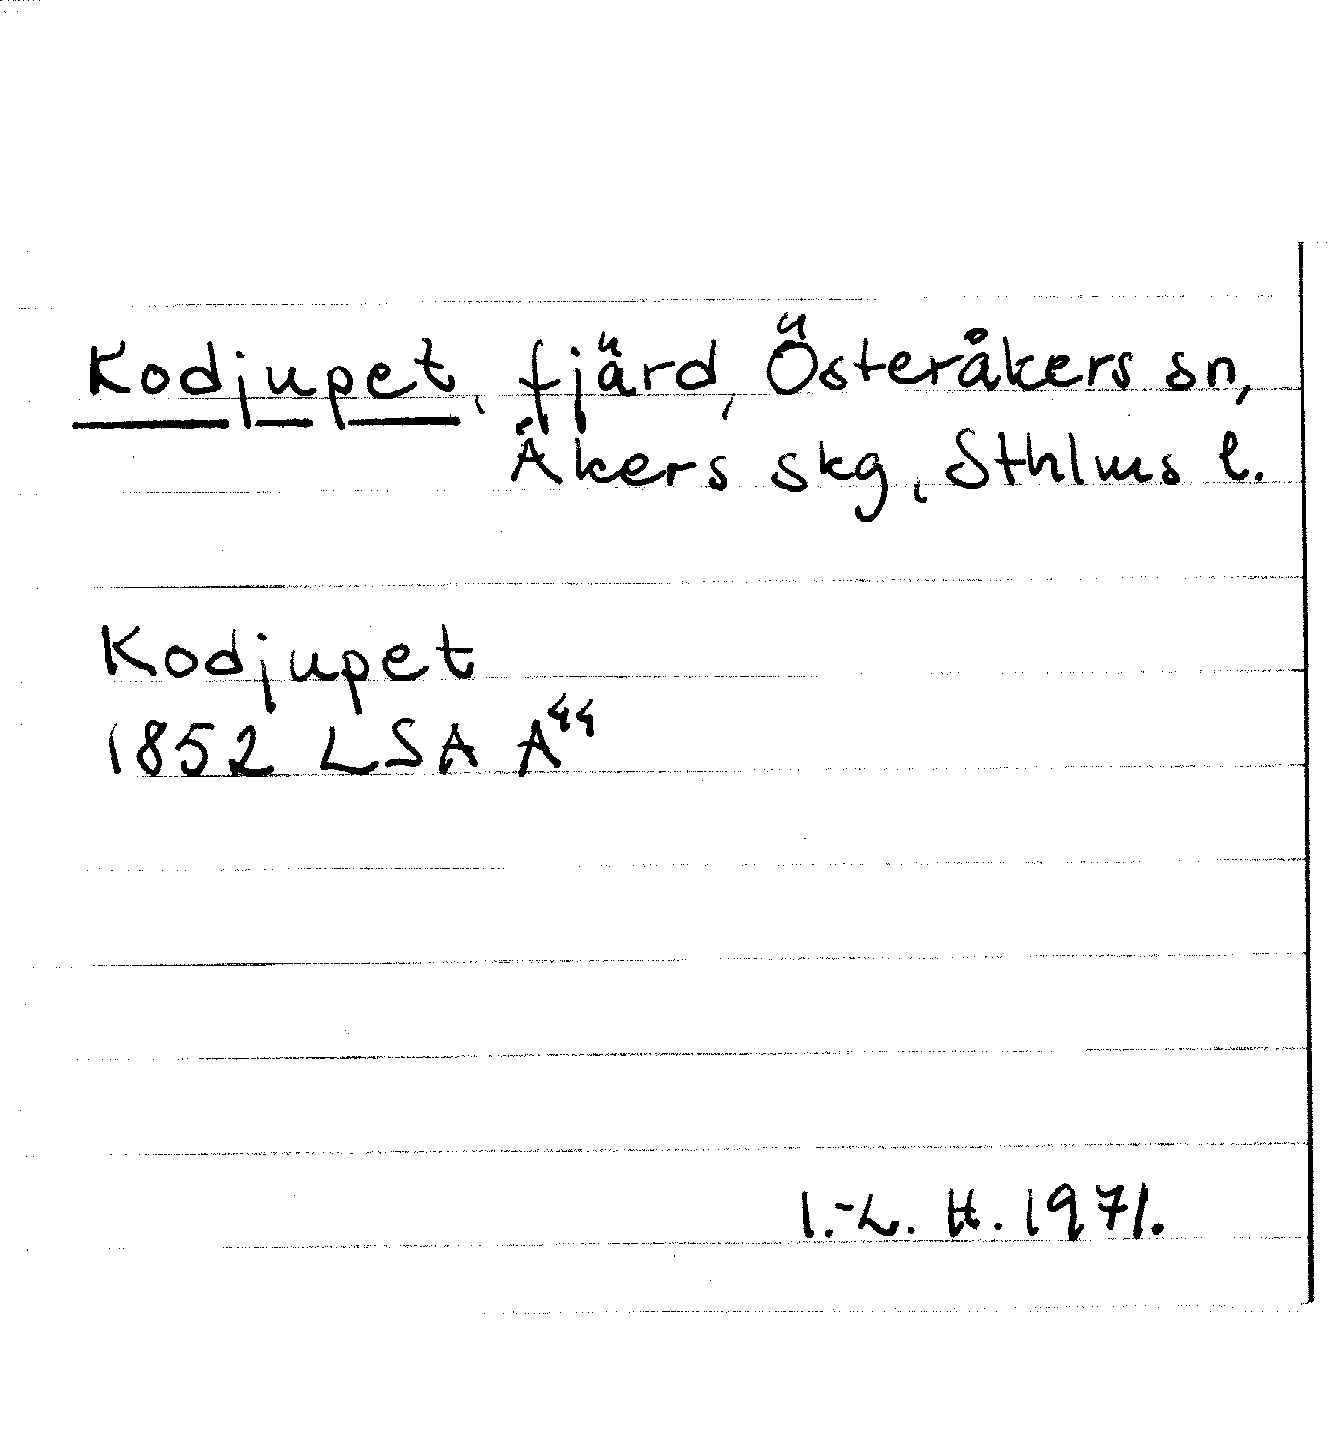 Kodjupet, fjärd, Österåkers sn,
Åkers skg, Sthlms l.
Kodjupet
1852 LSA A⁴⁴
I.-L. H. 1971.